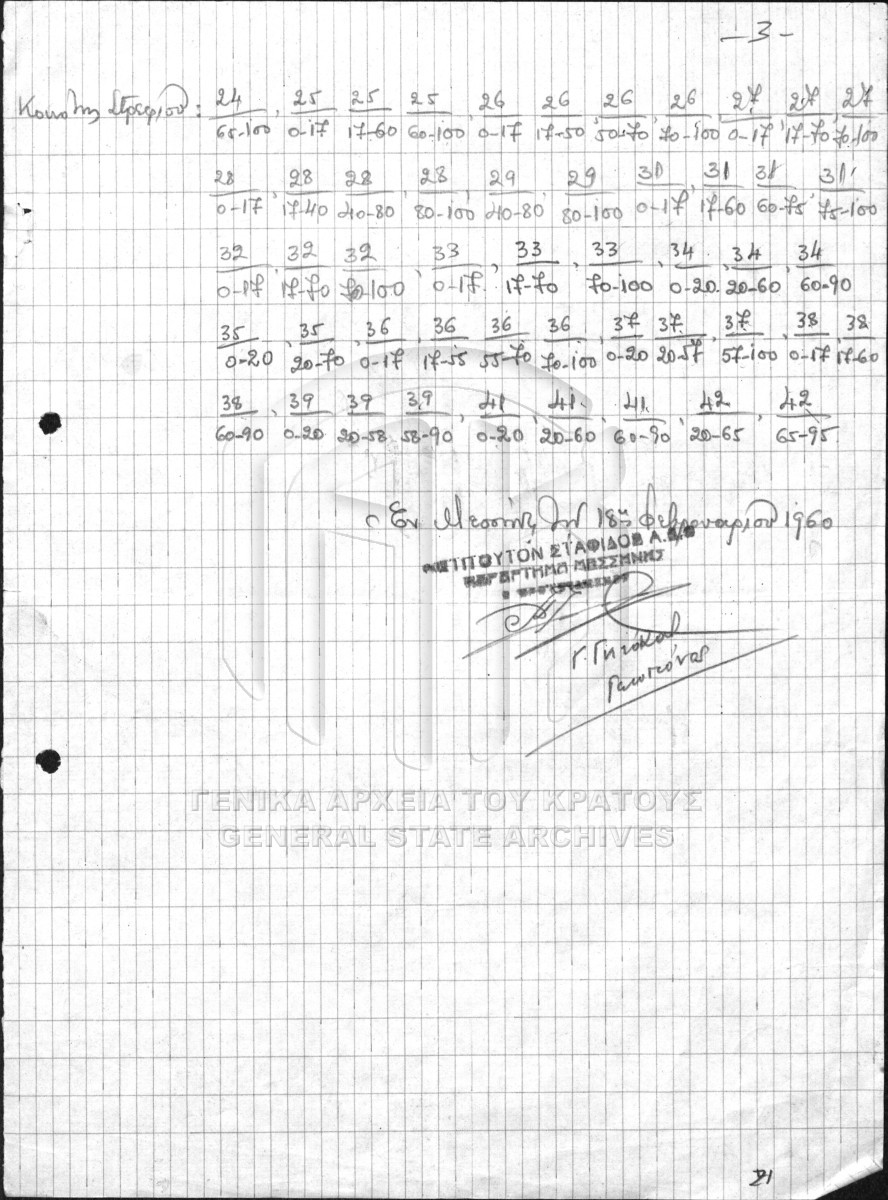 - 3 -
24/65-100, 25/0-17, 25/17-60, 25/60-100, 26/0-17, 26/17-50, 26/50-70, 26/70-100, 27/0-17, 27/17-70, 27/70-100
28/0-17, 28/17-40, 28/40-80, 28/80-100, 29/40-80, 29/80-100, 31/0-17, 31/17-60, 31/60-75, 31/75-100
32/0-17, 32/17-70, 32/70-100, 33/0-17, 33/17-70, 33/70-100, 34/0-20, 34/20-60, 34/60-90
35/0-20, 35/20-70, 36/0-17, 36/17-55, 36/55-70, 36/70-100, 37/0-20, 37/20-57, 37/57-100, 38/0-17, 38/17-60
38/60-90, 39/0-20, 39/20-58, 39/58-90, 41/0-20, 41/20-60, 41/60-90, 42/20-65, 42/65-95
Ἐν Μεσσήνῃ τῇ 18ῃ Φεβρουαρίου 1960
ΙΝΣΤΙΤΟΥΤΟΝ ΣΤΑΦΙΔΟΣ Α.Σ.Ο
ΠΑΡΑΡΤΗΜΑ ΜΕΣΣΗΝΗΣ
Γεωπόνος
ΓΕΝΙΚΑ ΑΡΧΕΙΑ ΤΟΥ ΚΡΑΤΟΥΣ
GENERAL STATE ARCHIVES
21